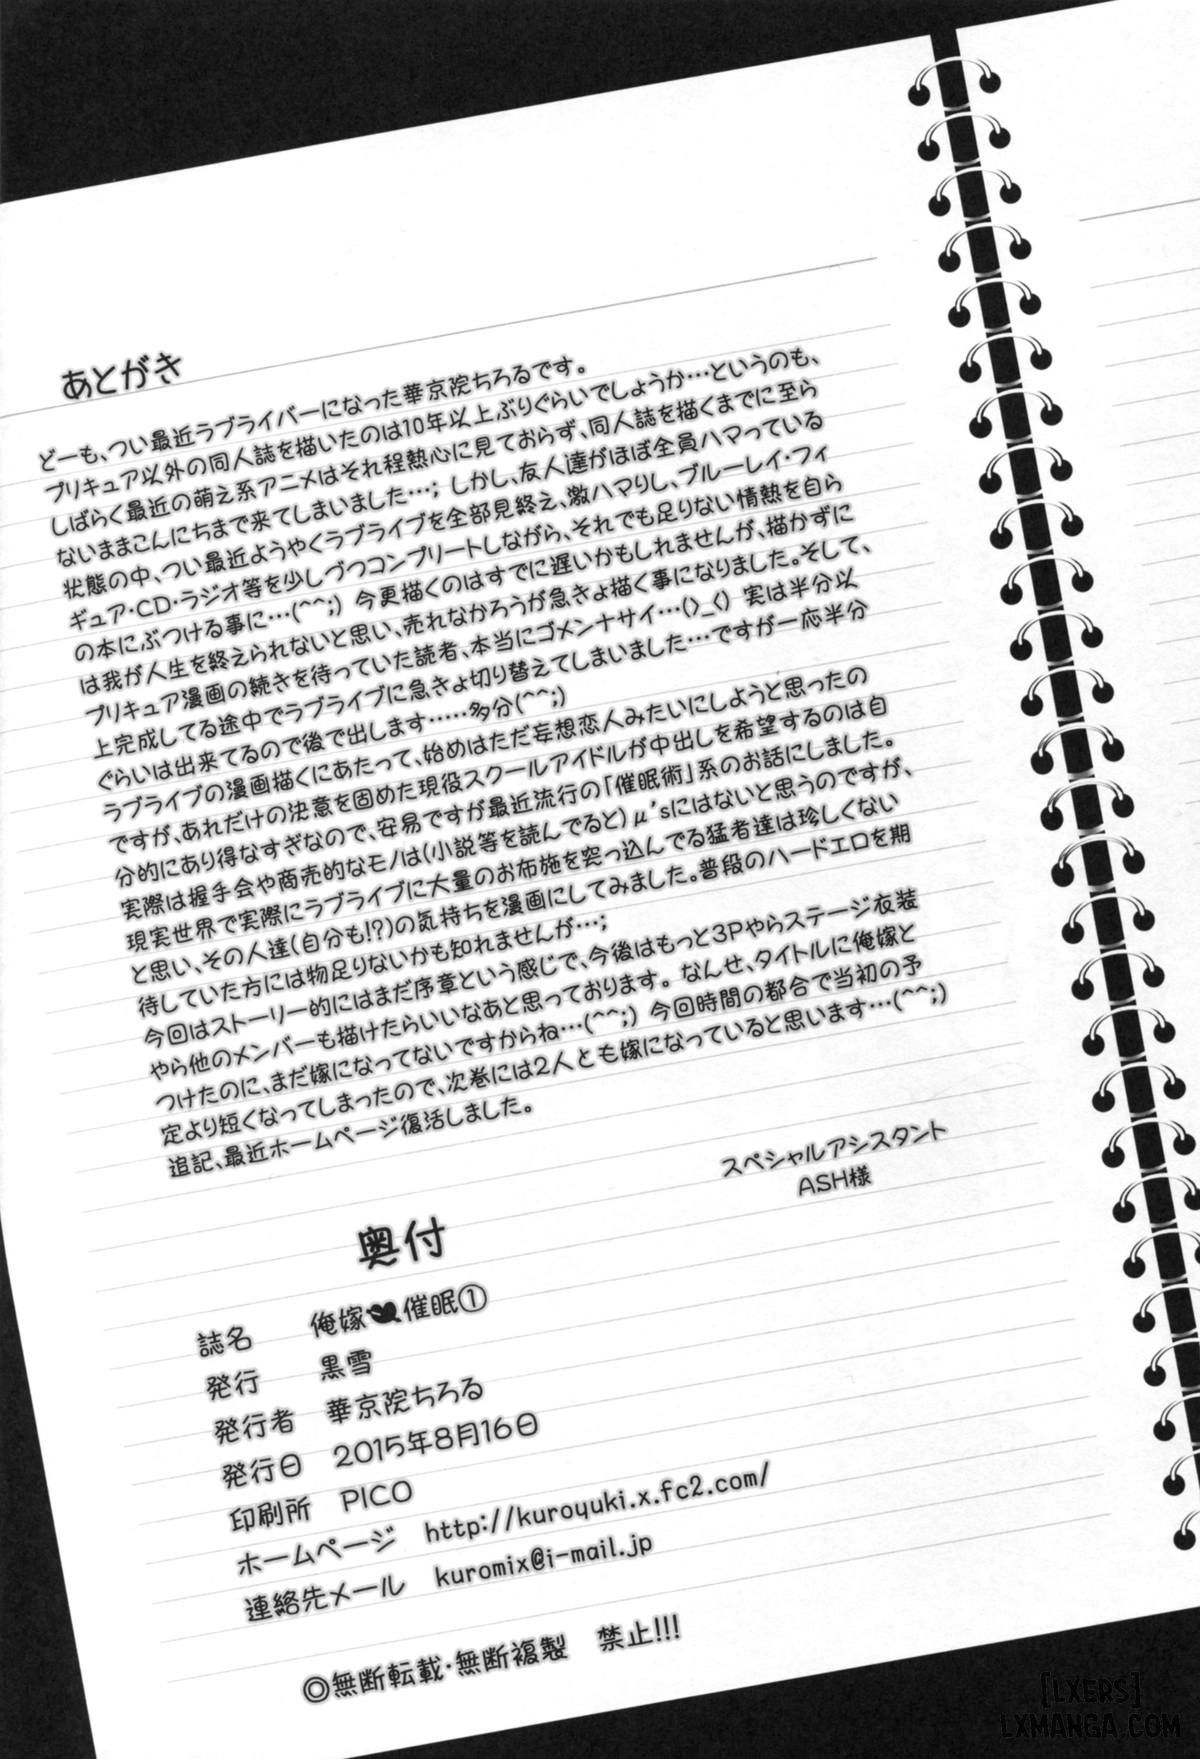 あとがき
どーも、つい最近ラブライバーになった華京院ちろるです。
プリキュア以外の同人誌を描いたのは10年以上ぶりぐらいでしょうか…というのも、
しばらく最近の萌え系アニメはそれ程熱心に見ておらず、同人誌を描くまでに至ら
ないままこんにちまで来てしまいました…; しかし、友人達がほぼ全員ハマっている
状態の中、つい最近ようやくラブライブを全部見終え、激ハマりし、ブルーレイ・フィ
ギュア・CD・ラジオ等を少しづつコンプリートしながら、それでも足りない情熱を自ら
の本にぶつける事に…(^^;) 今更描くのはすでに遅いかもしれませんが、描かずに
は我が人生を終えられないと思い、売れなかろうが急きょ描く事になりました。そして、
プリキュア漫画の続きを待っていた読者、本当にゴメンナサイ…(>_<) 実は半分以
上完成してる途中でラブライブに急きょ切り替えてしまいました…ですが一応半分
ぐらいは出来てるので後で出します……多分(^^;)
ラブライブの漫画描くにあたって、始めはただ妄想恋人みたいにしようと思ったの
ですが、あれだけの決意を固めた現役スクールアイドルが中出しを希望するのは自
分的にあり得なすぎなので、安易ですが最近流行の「催眠術」系のお話にしました。
実際は握手会や商売的なモノは(小説等を読んでると)μ'sにはないと思うのですが、
現実世界で実際にラブライブに大量のお布施を突っ込んでる猛者達は珍しくない
と思い、その人達(自分も!?)の気持ちを漫画にしてみました。普段のハードエロを期
待していた方には物足りないかも知れませんが…;
今回はストーリー的にはまだ序章という感じで、今後はもっと3Pやらステージ衣装
やら他のメンバーも描けたらいいなあと思っております。なんせ、タイトルに俺嫁と
つけたのに、まだ嫁になってないですからね…(^^;) 今回時間の都合で当初の予
定より短くなってしまったので、次巻には2人とも嫁になっていると思います…(^^;)
追記、最近ホームページ復活しました。
スペシャルアシスタント
ASH様
奥付
誌名 俺嫁催眠①
発行 黒雪
発行者 華京院ちろる
発行日 2015年8月16日
印刷所 PICO
ホームページ http://kuroyuki.x.fc2.com/
連絡先メール kuromix@i-mail.jp
◎無断転載・無断複製 禁止!!!
[LXERS]
LXMANGA.COM